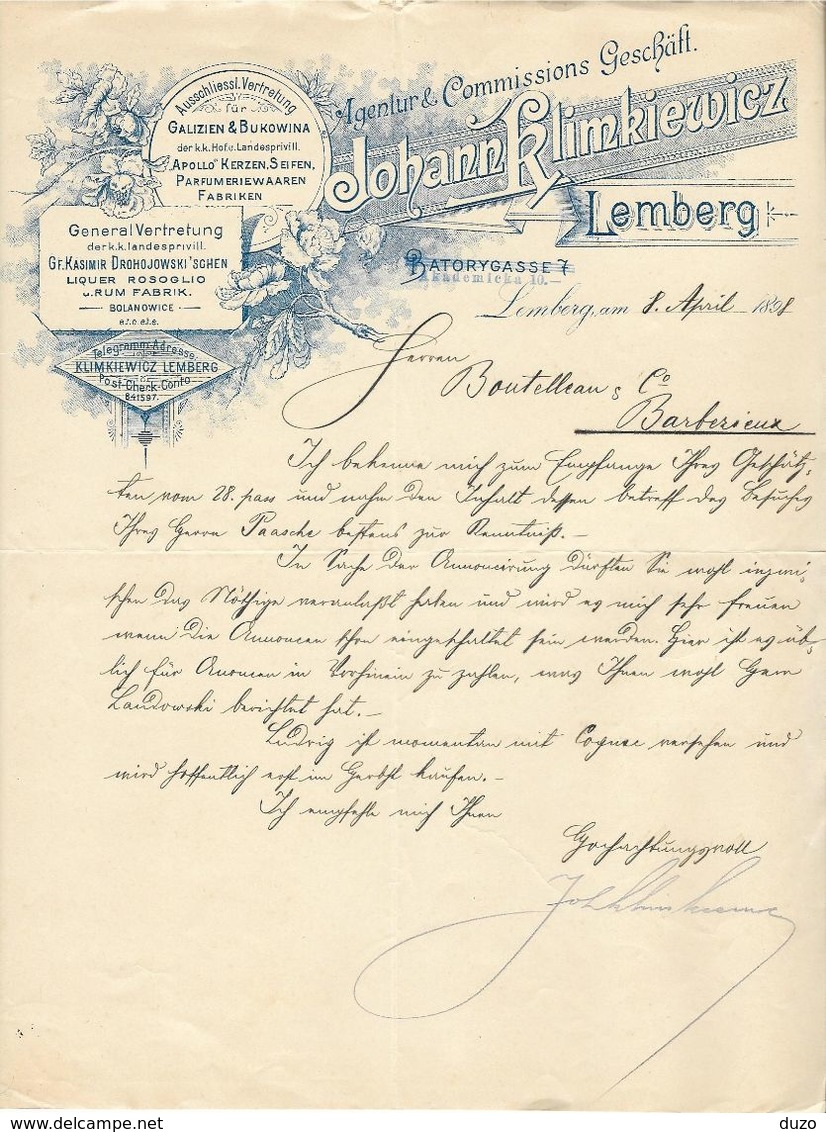 Agentur & Commissions Geschäft.
Johann Klimkiewicz
Lemberg
Ausschliessl. Vertretung
für
GALIZIEN & BUKOWINA
der k.k. Hof u. Landesprivill.
"APOLLO" KERZEN, SEIFEN,
PARFUMERIEWAAREN
FABRIKEN
General Vertretung
der k.k. landesprivill.
GF. KASIMIR DROHOJOWSKI'SCHEN
LIQUER ROSOGLIO
u. RUM FABRIK.
BOLANOWICE
e.t.c. e.t.c.
Telegramm-Adresse:
KLIMKIEWICZ LEMBERG
Post-Check-Conto
841597.
BATORYGASSE 7
Akademicka 10.—
Lemberg, am 8. April 1898
Herren
Boutelleau & Co
Barbezieux
Ich bekenne mich zum Empfange Ihres Geschätz-
ten vom 28. pass und nahm den Inhalt dessen betreff des Besuches
Ihres Herrn Paasche bestens zur Kenntniß.—
In Sache der Annoncirung dürften Sie wohl inzwi-
schen das Nöthige veranlaßt haben und wird es mich sehr freuen
wenn die Annoncen schon eingeschaltet sein werden. Hier ist es üb-
lich für Anoncen in Vorhinein zu zahlen, was Ihnen wohl Herr
Landowski berichtet hat.—
Ludwig ist momentan mit Cognac versehen und
wird hoffentlich erst im Herbst kaufen.—
Ich empfehle mich Ihnen
Hochachtungsvoll
delcampe.net
duzo